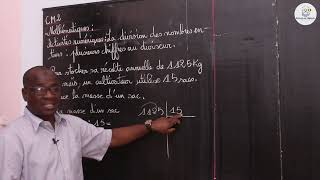 CM2
Mathématiques:
Activités numériques: La division des nombres en-
tiers: plusieurs chiffres au diviseur.
Pour stocker sa récolte annuelle de 1125 Kg
maïs, un cultivateur utilise 15 sacs.
la masse d'un sac.
masse d'un sac
15 =
1125 15